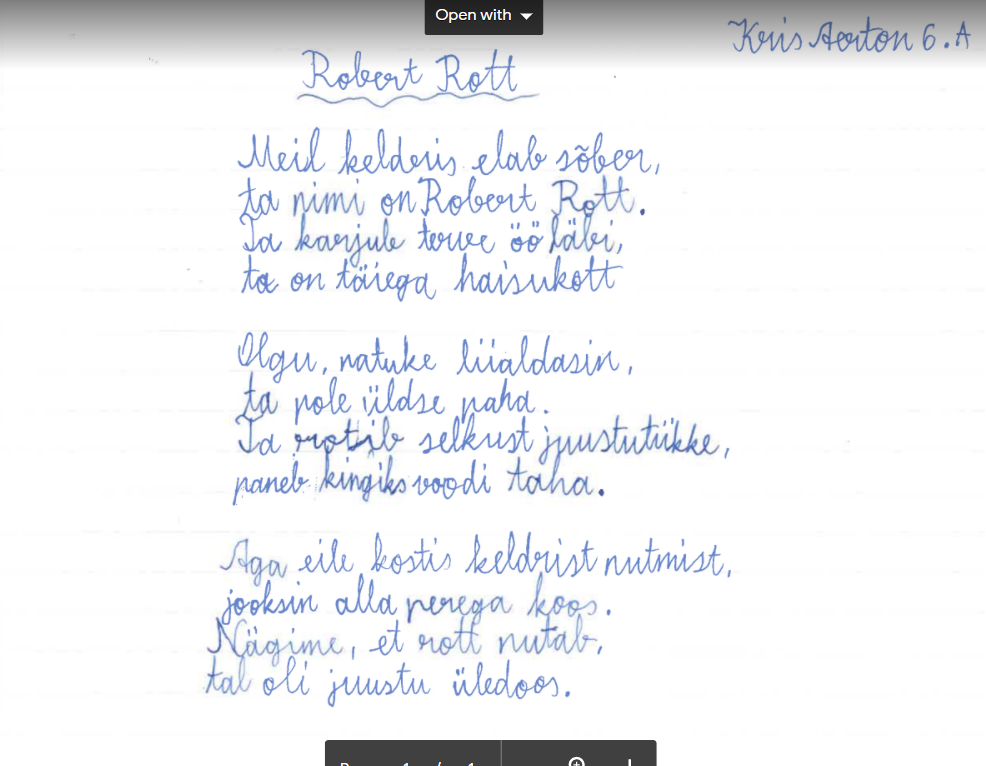 Open with
Kris Aorton 6.A
Robert Rott
Meil kelderis elab sõber,
ta nimi on Robert Rott.
Ta karjub terve öö läbi,
ta on täiega haisukott
Olgu, natuke liialdasin,
ta pole üldse paha.
Ta selkust juustutükke,
paneb kingiks voodi taha.
Aga eile kostis keldrist nutmist,
jooksin alla perega koos.
Nägime, et rott nutab,
tal oli juustu üledoos.